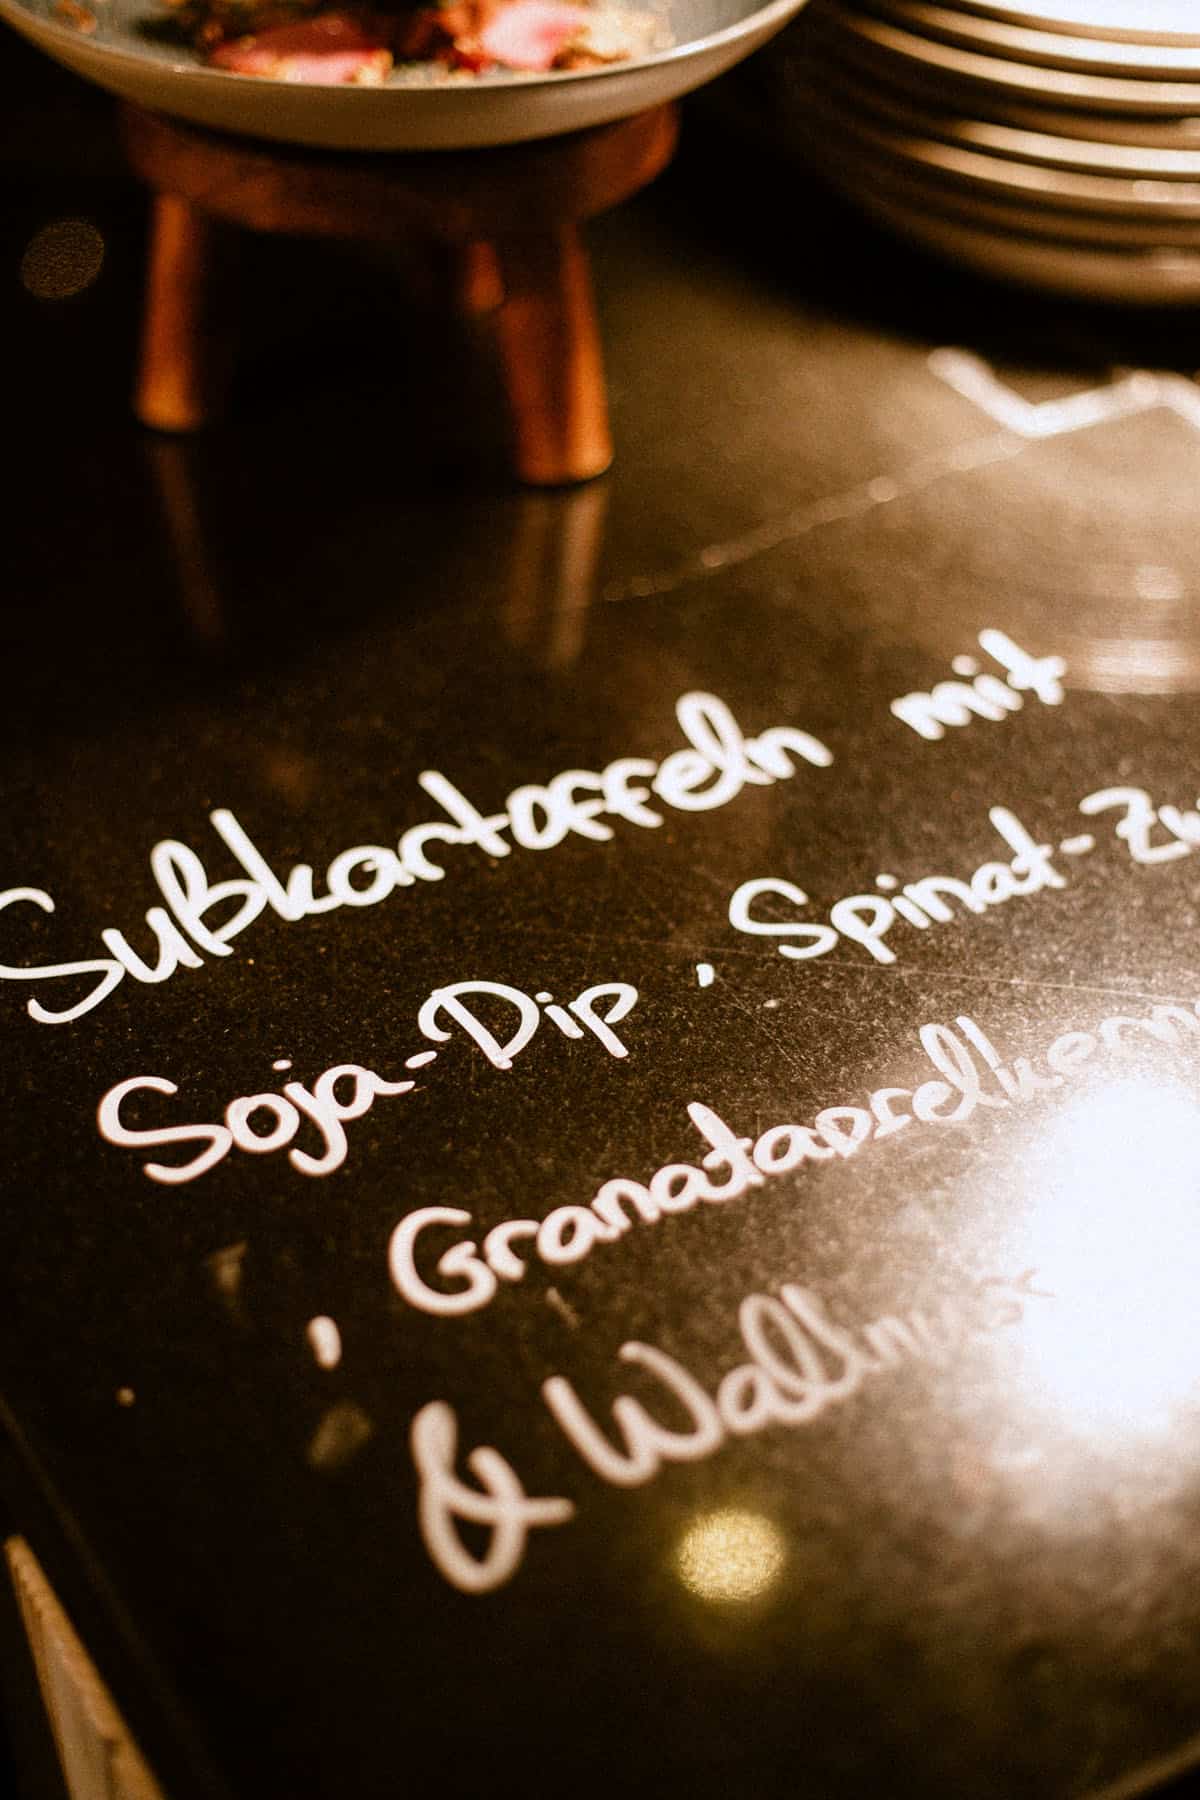 Sußkartoffeln mit
Soja-Dip, Spinat-
, Granatapfelkern
& Wallnuss